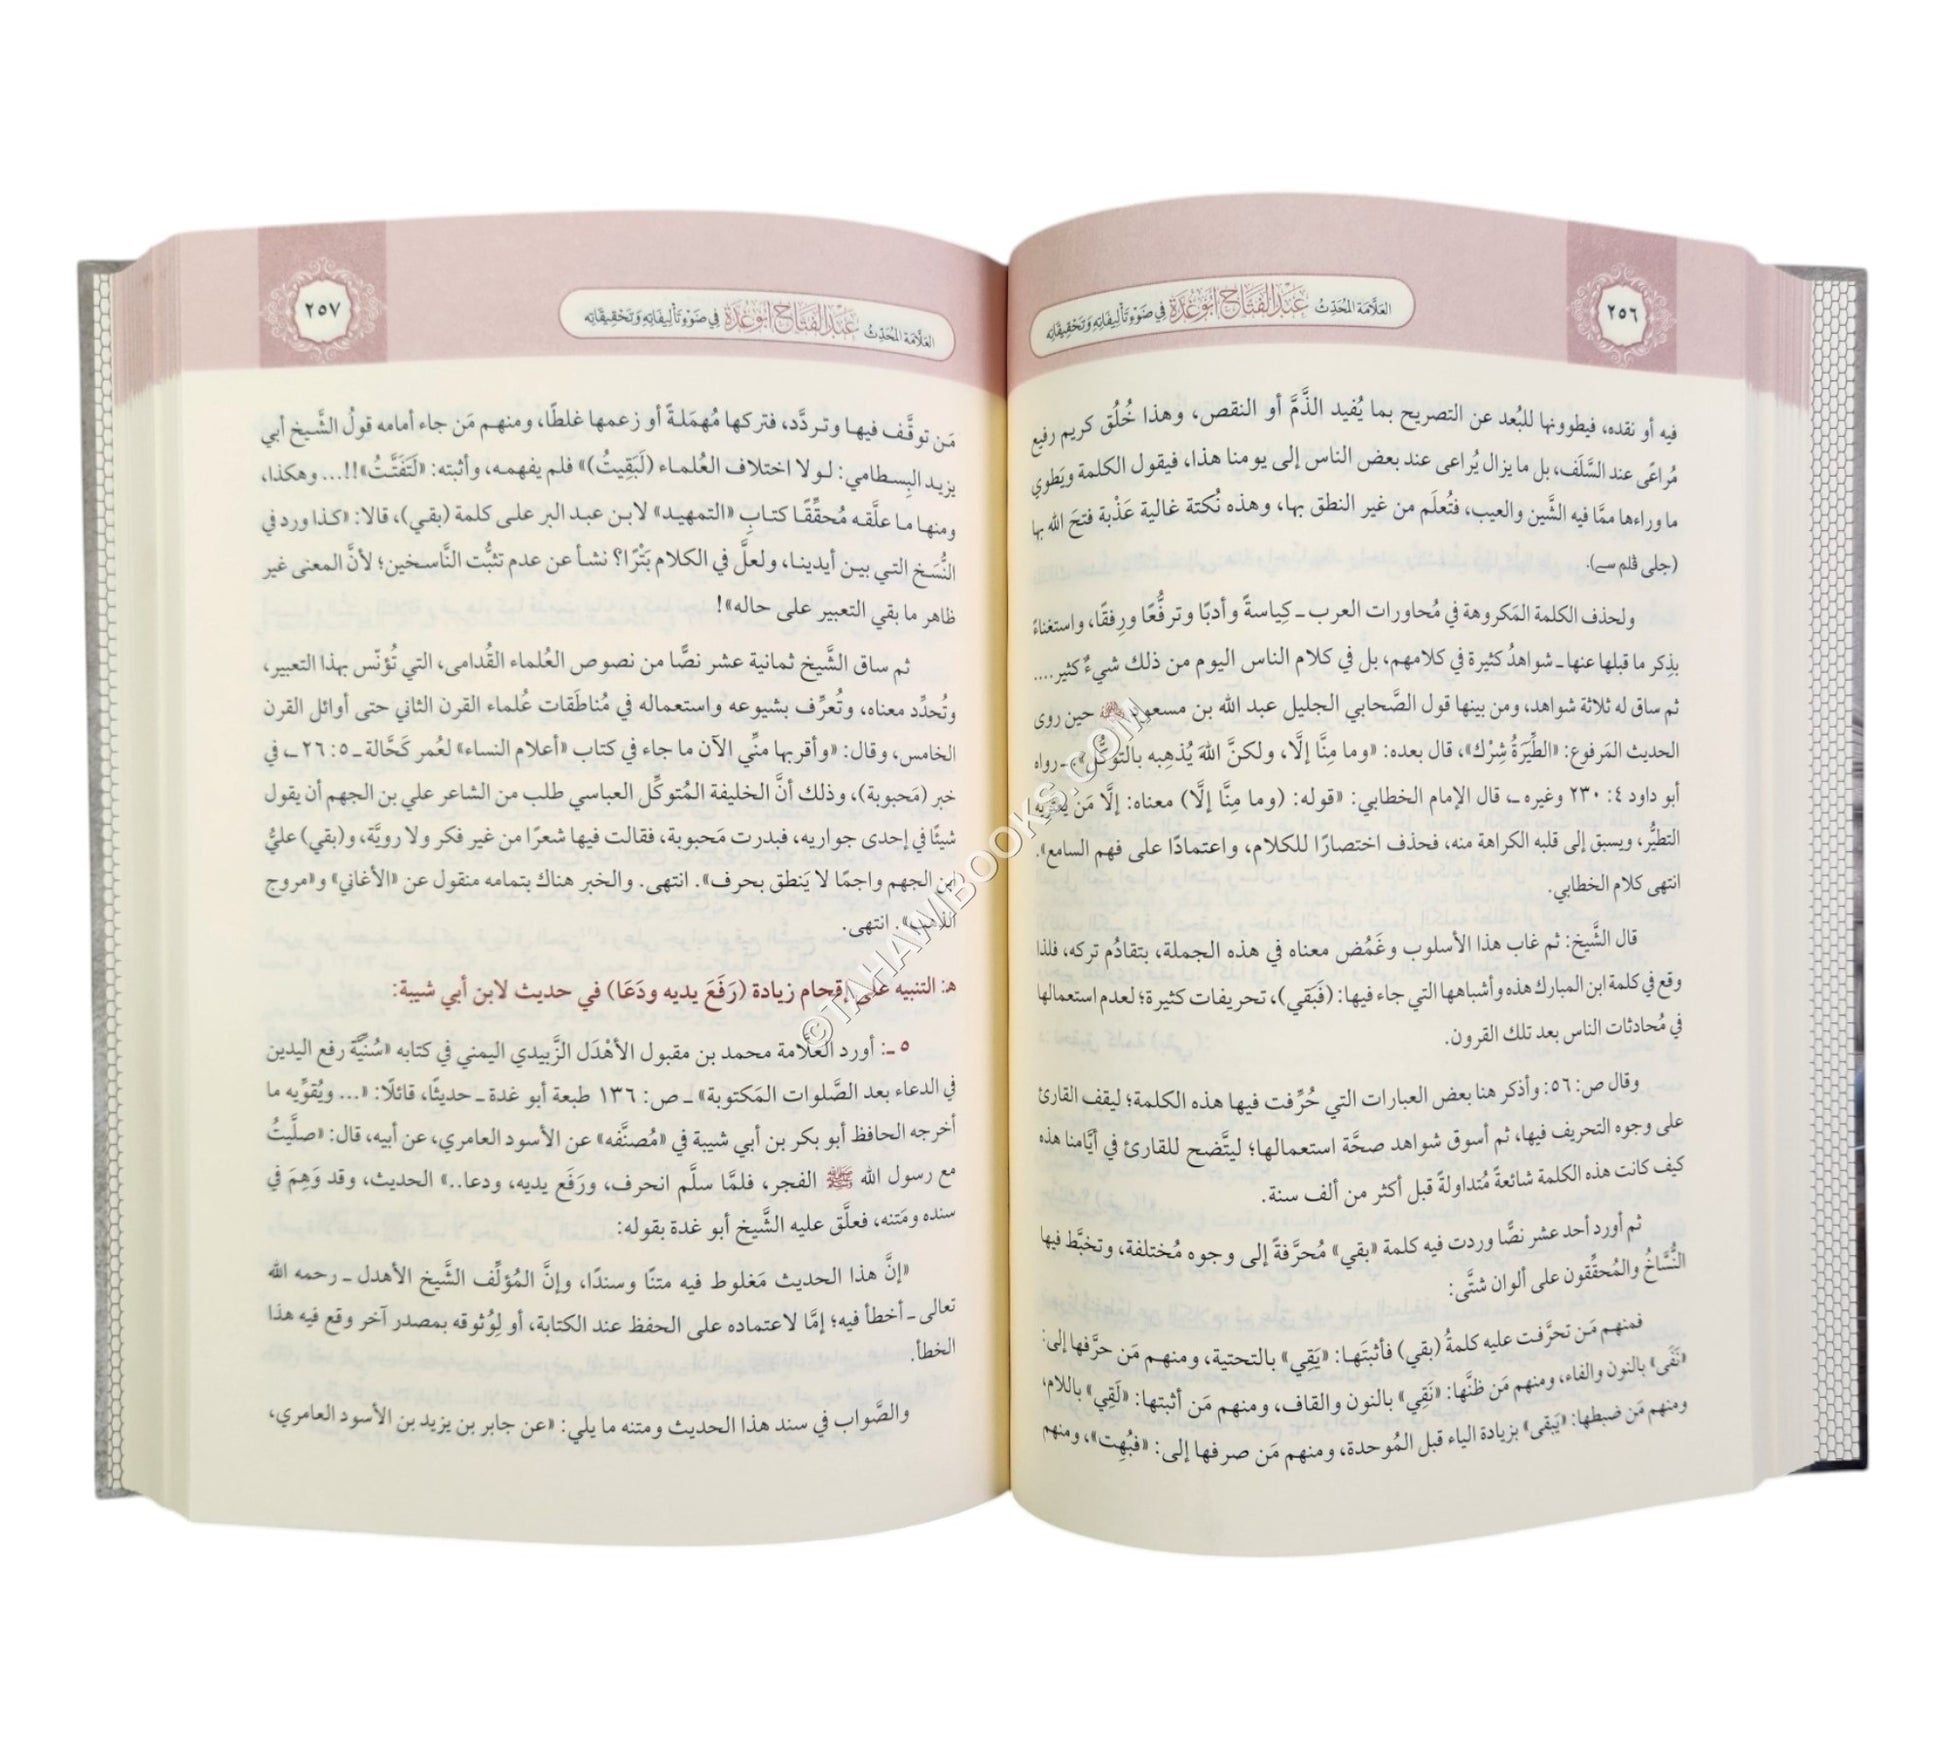 ٢٥٦
العَلَّامَة المُحَدِّثُ عَبْدُ الفَتَّاحِ أَبُو غُدَّة في ضَوْءِ تَآلِيفَاتِهِ وَتَحْقِيقَاتِهِ
فيه أو نقده، فيطوونها للبُعد عن التصريح بما يُفيد الذَّمَّ أو النقص، وهذا خُلُق كريم رفيع
مُراعًى عند السَّلَف، بل ما يزال يُراعى عند بعض الناس إلى يومنا هذا، فيقول الكلمة ويَطوي
ما وراءها ممَّا فيه الشَّين والعيب، فتُعلَم من غير النطق بها، وهذه نُكتة غالية عَذْبة فتحَ الله بها
(جلى قلم سے).
ولحذف الكلمة المَكروهة في مُحاورات العرب ـ كِياسةً وأدبًا وترفُّعًا ورِفقًا، واستغناءً
بذِكر ما قبلها عنها ـ شواهدُ كثيرة في كلامهم، بل في كلام الناس اليوم من ذلك شيءٌ كثير....
ثم ساق له ثلاثة شواهد، ومن بينها قول الصَّحابي الجليل عبد الله بن مسعود حين روى
الحديث المَرفوع: «الطِّيَرَةُ شِرْك»، قال بعده: «وما مِنَّا إلَّا، ولكنَّ اللهَ يُذهِبه بالتوكُّل» ـ رواه
أبو داود ٤: ٢٣٠ وغيره ـ، قال الإمام الخطابي: «قوله: (وما مِنَّا إلَّا) معناه: إلَّا مَن يعتريه
التطيُّر، ويسبق إلى قلبه الكراهة منه، فحذف اختصارًا للكلام، واعتمادًا على فهم السامع».
انتهى كلام الخطابي.
قال الشَّيخ: ثم غاب هذا الأسلوب وغَمُض معناه في هذه الجملة، بتقادُم تركه، فلذا
وقع في كلمة ابن المبارك هذه وأشباهها التي جاء فيها: (فَبَقي)، تحريفات كثيرة؛ لعدم استعمالها
في مُحادثات الناس بعد تلك القرون.
وقال ص: ٥٦: وأذكر هنا بعض العبارات التي حُرِّفت فيها هذه الكلمة؛ ليقف القارئ
على وجوه التحريف فيها، ثم أسوق شواهد صحَّة استعمالها؛ ليتَّضح للقارئ في أيَّامنا هذه
كيف كانت هذه الكلمة شائعةً مُتداولةً قبل أكثر من ألف سنة.
ثم أورد أحد عشر نصًّا وردت فيه كلمة «بقي» مُحرَّفةً إلى وجوه مُختلفة، وتخبَّط فيها
النُّسَّاخُ والمُحقِّقون على ألوان شتَّى:
فمنهم مَن تحرَّفت عليه كلمةُ (بقي) فأثبتَها: «يَقِي» بالتحتية، ومنهم مَن حرَّفها إلى:
«نَفَى» بالنون والفاء، ومنهم مَن ظنَّها: «نَقِي» بالنون والقاف، ومنهم مَن أثبتها: «لَقِي» باللام،
ومنهم مَن ضبطها: «يَبقى» بزيادة الياء قبل المُوحدة، ومنهم مَن صرفها إلى: «فبُهِت»، ومنهم
٢٥٧
العَلَّامَة المُحَدِّثُ عَبْدُ الفَتَّاحِ أَبُو غُدَّة في ضَوْءِ تَآلِيفَاتِهِ وَتَحْقِيقَاتِهِ
مَن توقَّف فيها وتردَّد، فتركها مُهمَلةً أو زعمها غلطًا، ومنهم مَن جاء أمامه قولُ الشَّيخ أبي
يزيد البِسطامي: لولا اختلاف العُلماء (لَبَقِيتُ)» فلم يفهمه، وأثبته: «لَتَفَتَّتُ»!!... وهكذا،
ومنها ما علَّقه مُحقِّقًا كتابِ «التمهيد» لابن عبد البر على كلمة (بقي)، قالا: «كذا ورد في
النُّسَخ التي بين أيدينا، ولعلَّ في الكلام بَتْرًا؟ نشأ عن عدم تثبُّت النَّاسخين؛ لأنَّ المعنى غير
ظاهر ما بقي التعبير على حاله»!
ثم ساق الشَّيخ ثمانية عشر نصًّا من نصوص العُلماء القُدامى، التي تُؤنّس بهذا التعبير،
وتُحدِّد معناه، وتُعرِّف بشيوعه واستعماله في مُناطَقات عُلماء القرن الثاني حتى أوائل القرن
الخامس، وقال: «وأقربها منِّي الآن ما جاء في كتاب «أعلام النساء» لعُمر كَحَّالة ـ ٥: ٢٦ ـ، في
خبر (مَحبوبة)، وذلك أنَّ الخليفة المُتوكِّل العباسي طلب من الشاعر علي بن الجهم أن يقول
شيئًا في إحدى جواريه، فبدرت مَحبوبة، فقالت فيها شعرًا من غير فكر ولا رويَّة، و(بقي) عليُّ
ابن الجهم واجمًا لا يَنطق بحرف». انتهى. والخبر هناك بتمامه منقول عن «الأغاني» و«مروج
الذهب». انتهى.
هـ: التنبيه على إقحام زيادة (رَفَعَ يديه ودَعَا) في حديث لابن أبي شيبة:
٥ ـ: أورد العلَّامة محمد بن مقبول الأهْدَل الزَّبيدي اليمني في كتابه «سُنِّيَّة رفع اليدين
في الدعاء بعد الصَّلوات المَكتوبة» ـ ص: ١٣٦ طبعة أبو غدة ـ حديثًا، قائلًا: «... ويُقوِّيه ما
أخرجه الحافظ أبو بكر بن أبي شيبة في «مُصنَّفه» عن الأسود العامري، عن أبيه، قال: «صلَّيتُ
مع رسول الله ﷺ الفجر، فلمَّا سلَّم انحرف، ورَفَع يديه، ودعا..» الحديث، وقد وَهِمَ في
سنده ومَتنه، فعلَّق عليه الشَّيخ أبو غدة بقوله:
«إنَّ هذا الحديث مَغلوط فيه متنًا وسندًا، وإنَّ المُؤلِّف الشَّيخ الأهدل ـ رحمه الله
تعالى ـ أخطأ فيه؛ إمَّا لاعتماده على الحفظ عند الكتابة، أو لِوُثوقه بمصدر آخر وقع فيه هذا
الخطأ.
والصَّواب في سند هذا الحديث ومتنه ما يلي: «عن جابر بن يزيد بن الأسود العامري،
©TAHAWIBOOKS.COM